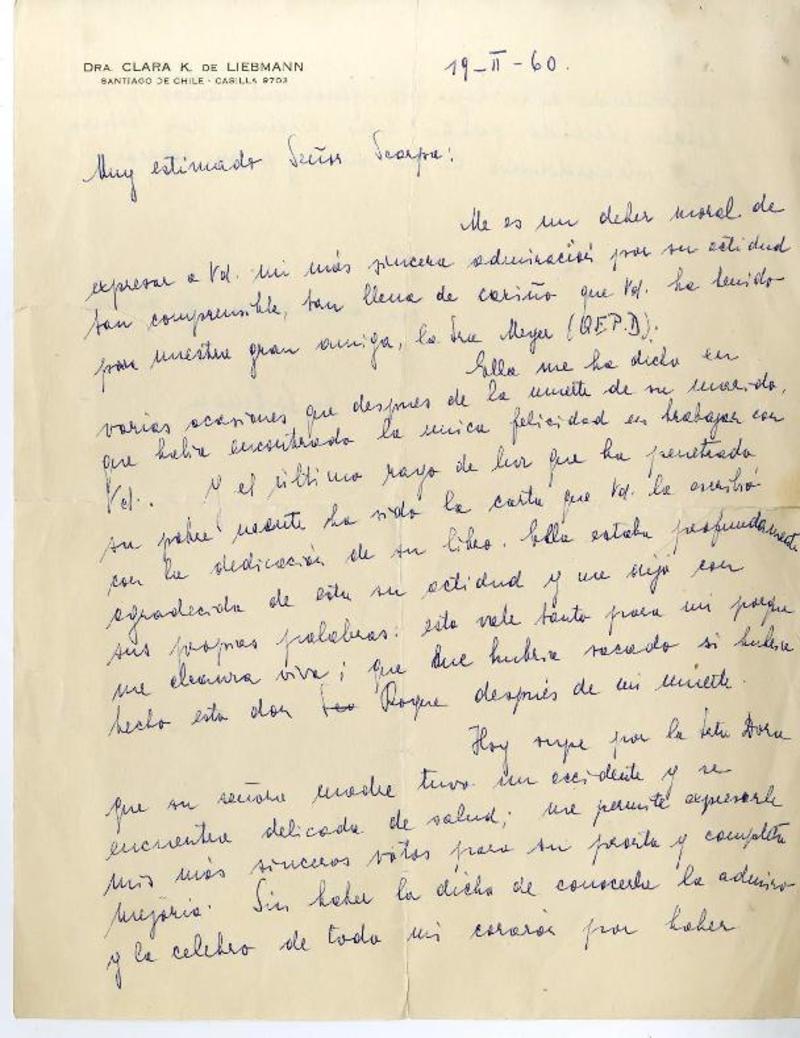 DRA. CLARA K. DE LIEBMANN
SANTIAGO DE CHILE - CASILLA 9703
19-II-60.
Muy estimado Señor Scarpa:
Me es un deber moral de
expresar a Vd. mi más sincera admiración por su actidud
tan comprensible, tan llena de cariño que Vd. ha tenido
para nuestra gran amiga, la Sra Meyer (Q.E.P.D).
Ella me ha dicho en
varias ocasiones que despues de la muerte de su marido,
que habia encontrado la unica felicidad en trabajar con
Vd. Y el último rayo de luz que ha penetrado
su pobre mente ha sido la carta que Vd. la escribió
con la dedicación de su libro. Ella estaba profundamente
agradecida de esta su actidud y me dijó con
sus propias palabras: esto vale tanto para mi porque
me alcanza viva; que hubiera sacado si hubiera
hecho esto don Roque después de mi muerte.
Hoy supe por la Srta Dora
que su señora madre tuvo un accidente y se
encuentra delicada de salud; me permite expresarle
mis más sinceros vótos para su pronta y completa
mejoria. Sin haber la dicha de conocerla la admiro
y la celebro de todo mi corazón por haber